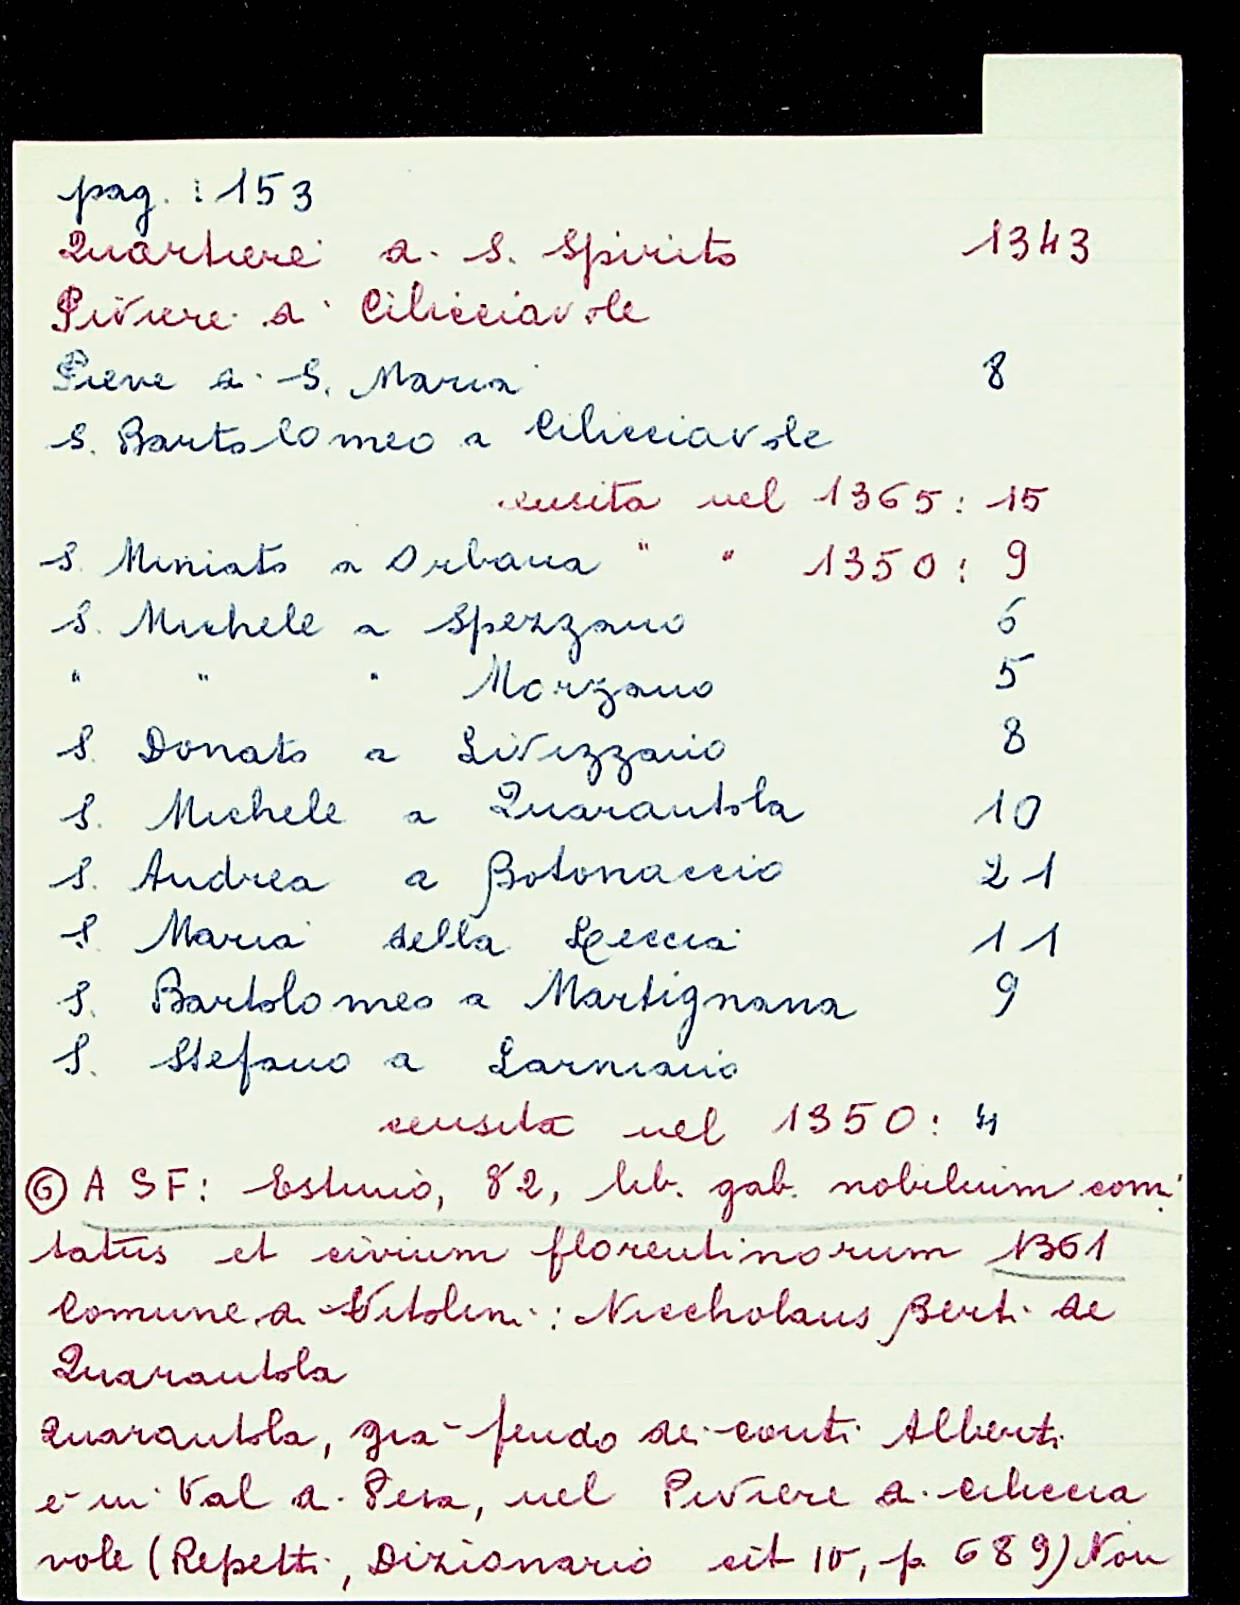 pag. : 153
Quartiere di S. Spirito 1343
Piviere di Cilicciavole
Pieve di S. Maria 8
S. Bartolomeo a Cilicciavole
censita nel 1365 : 15
S. Miniato a Orbana " " 1350 : 9
S. Michele a Spezzano 6
" " " Morzano 5
S. Donato a Livizzano 8
S. Michele a Quarantola 10
S. Andrea a Botonaccio 21
S. Maria della Leccia 11
S. Bartolomeo a Martignana 9
S. Stefano a Larniano
censita nel 1350 : 4
⑥ ASF: Estimo, 82, lib. gab. nobilium comi
tatus et civium florentinorum 1361
Comune di Vitolini : Niccholaus Berti de
Quarantola
Quarantola, già feudo dei conti Alberti
è in Val di Pesa, nel Piviere di Ciliccia
vole (Repetti, Dizionario cit IV, p. 689) Non